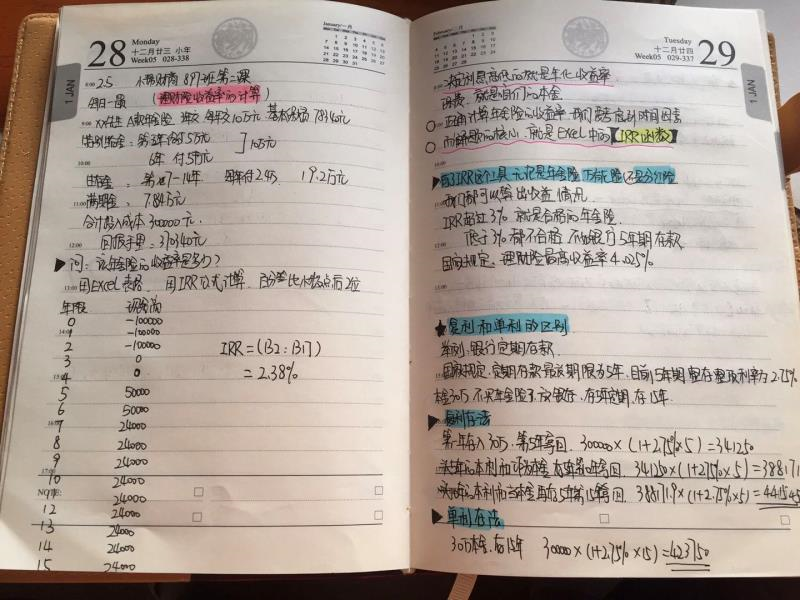 28
Monday
十二月廿三 小年
Week05 028-338
January/一月
1 JAN
8:00
2.5 小帮财商 897班第二课
每日一题 (理财险收益率的计算)
9:00
XX先生 A款年金险 3年交 每年交10万元 基本保额 78340元
特别生存金: 第5年领5万元
6年 付5万元
] 10万元
10:00
生存金: 第7-14年 每年付2.4万 19.2万元
11:00
满期金: 7.84万元
合计投入成本 300000元
12:00
回报手里 = 370340元
▶问: 该年金险的收益率是多少?
13:00
用Excel表格 用IRR公式计算. 百分比小数点后2位
年度 现金流
0 -100000
14:00
1 -100000
2 -100000
3 0
4 0
5 50000
6 50000
7 24000
8 24000
9 24000
10 24000
11 24000
12 24000
13 24000
14 24000
15 24000
IRR = (B2 : B17)
= 2.38%
17:00
NOTE:
February/二月
Tuesday
十二月廿四
Week05 029-337
29
1 JAN
8:00
本就是年化收益率
就是咱们的本金
正确计算年金险的收益率 我们要考虑到时间因素
而解题的核心, 就是Excel中的【IRR函数】
10:00
▶有了IRR这个工具 无论是年金险 万能险 (不是分红险
11:00
我们都可以算出收益情况
IRR超过3% 就是合格的年金险.
12:00
低于3%都不合格 不如银行5年期存款
国家规定. 理财险最高收益率4.025%
13:00
★复利和单利的区别
举例: 银行定期存款.
国家规定, 定期存款最长期限为5年. 目前5年期整存整取利率为2.75%
本金30万 不买年金险了. 放银行. 存5年定期. 存15年.
▶复利存法
第一年存入30万. 第5年拿回. 300000×(1+2.75%×5)=341250
341250×(1+2.75%×5)=388171
388171.9×(1+2.75%×5)=441545
▶单利存法
30万本金. 存15年 300000×(1+2.75%×15)=423750